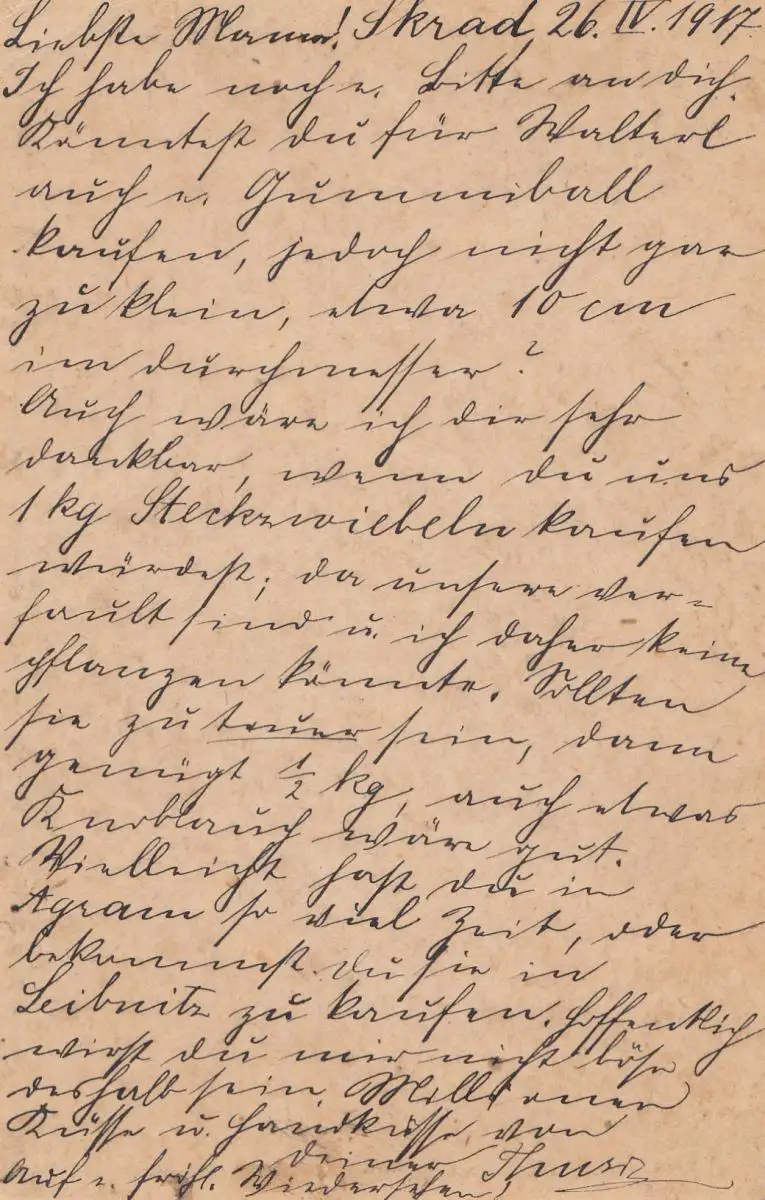 Liebste Mama! Skrad, 26. IV. 1917.
Ich habe noch e. Bitte an dich.
Könntest du für Walterl
auch e. Gummiball
kaufen, jedoch nicht gar
zu klein, etwa 10 cm
im durchmesser?
Auch wäre ich dir sehr
dankbar, wenn du uns
1 kg Steckzwiebeln kaufen
würdest; da unsere ver-
fault sind u. ich daher keine
pflanzen könnte. Sollten
sie zu teuer sein, dann
genügt ½ kg, auch etwas
Knoblauch wäre gut.
Vielleicht hast du in
Agram so viel Zeit, oder
bekommst du sie in
Leibnitz zu kaufen. Hoffentlich
wirst du mir nicht böse
deshalb sein. Millionen
Küsse u. Handküsse von
deiner
Auf e. fröhl. Wiedersehen,